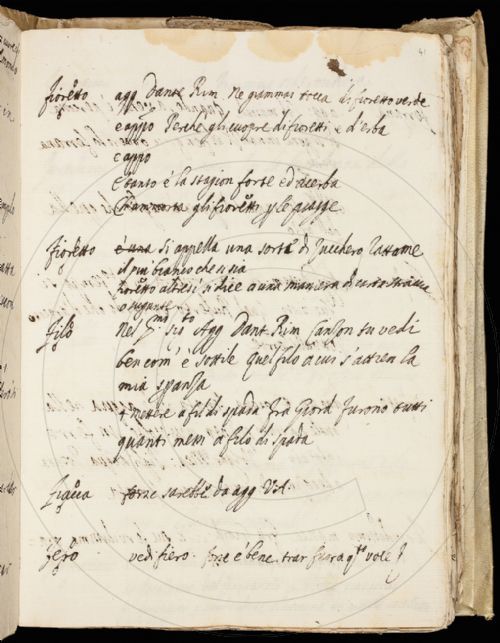 41
fioretto agg Dante Rim Ne grammai tocca di fioretto verde
e appo Perche gli cuopre di fioretti e d'erba
e appo
E tanto è la stagion forte ed acerba
Ch' ammorta gli fioretti p le piagge
fioretto è una si appella una sorta di Zucchero
il piu bianco che si sia
fioretto altresi si dice a una maniera di carta straccia
o sugante
filo Nel pmo sigto Agg Dant Rim Canzon tu vedi
ben com' è sottile quel filo a cui s'attien la
mia speranza
+ mettere a fil di spada fra Giord furono tutti
quanti messi a filo di spada
forse sarebbe da agg V.A.
fero vedi fiero. forse è bene trar fuora qta voce